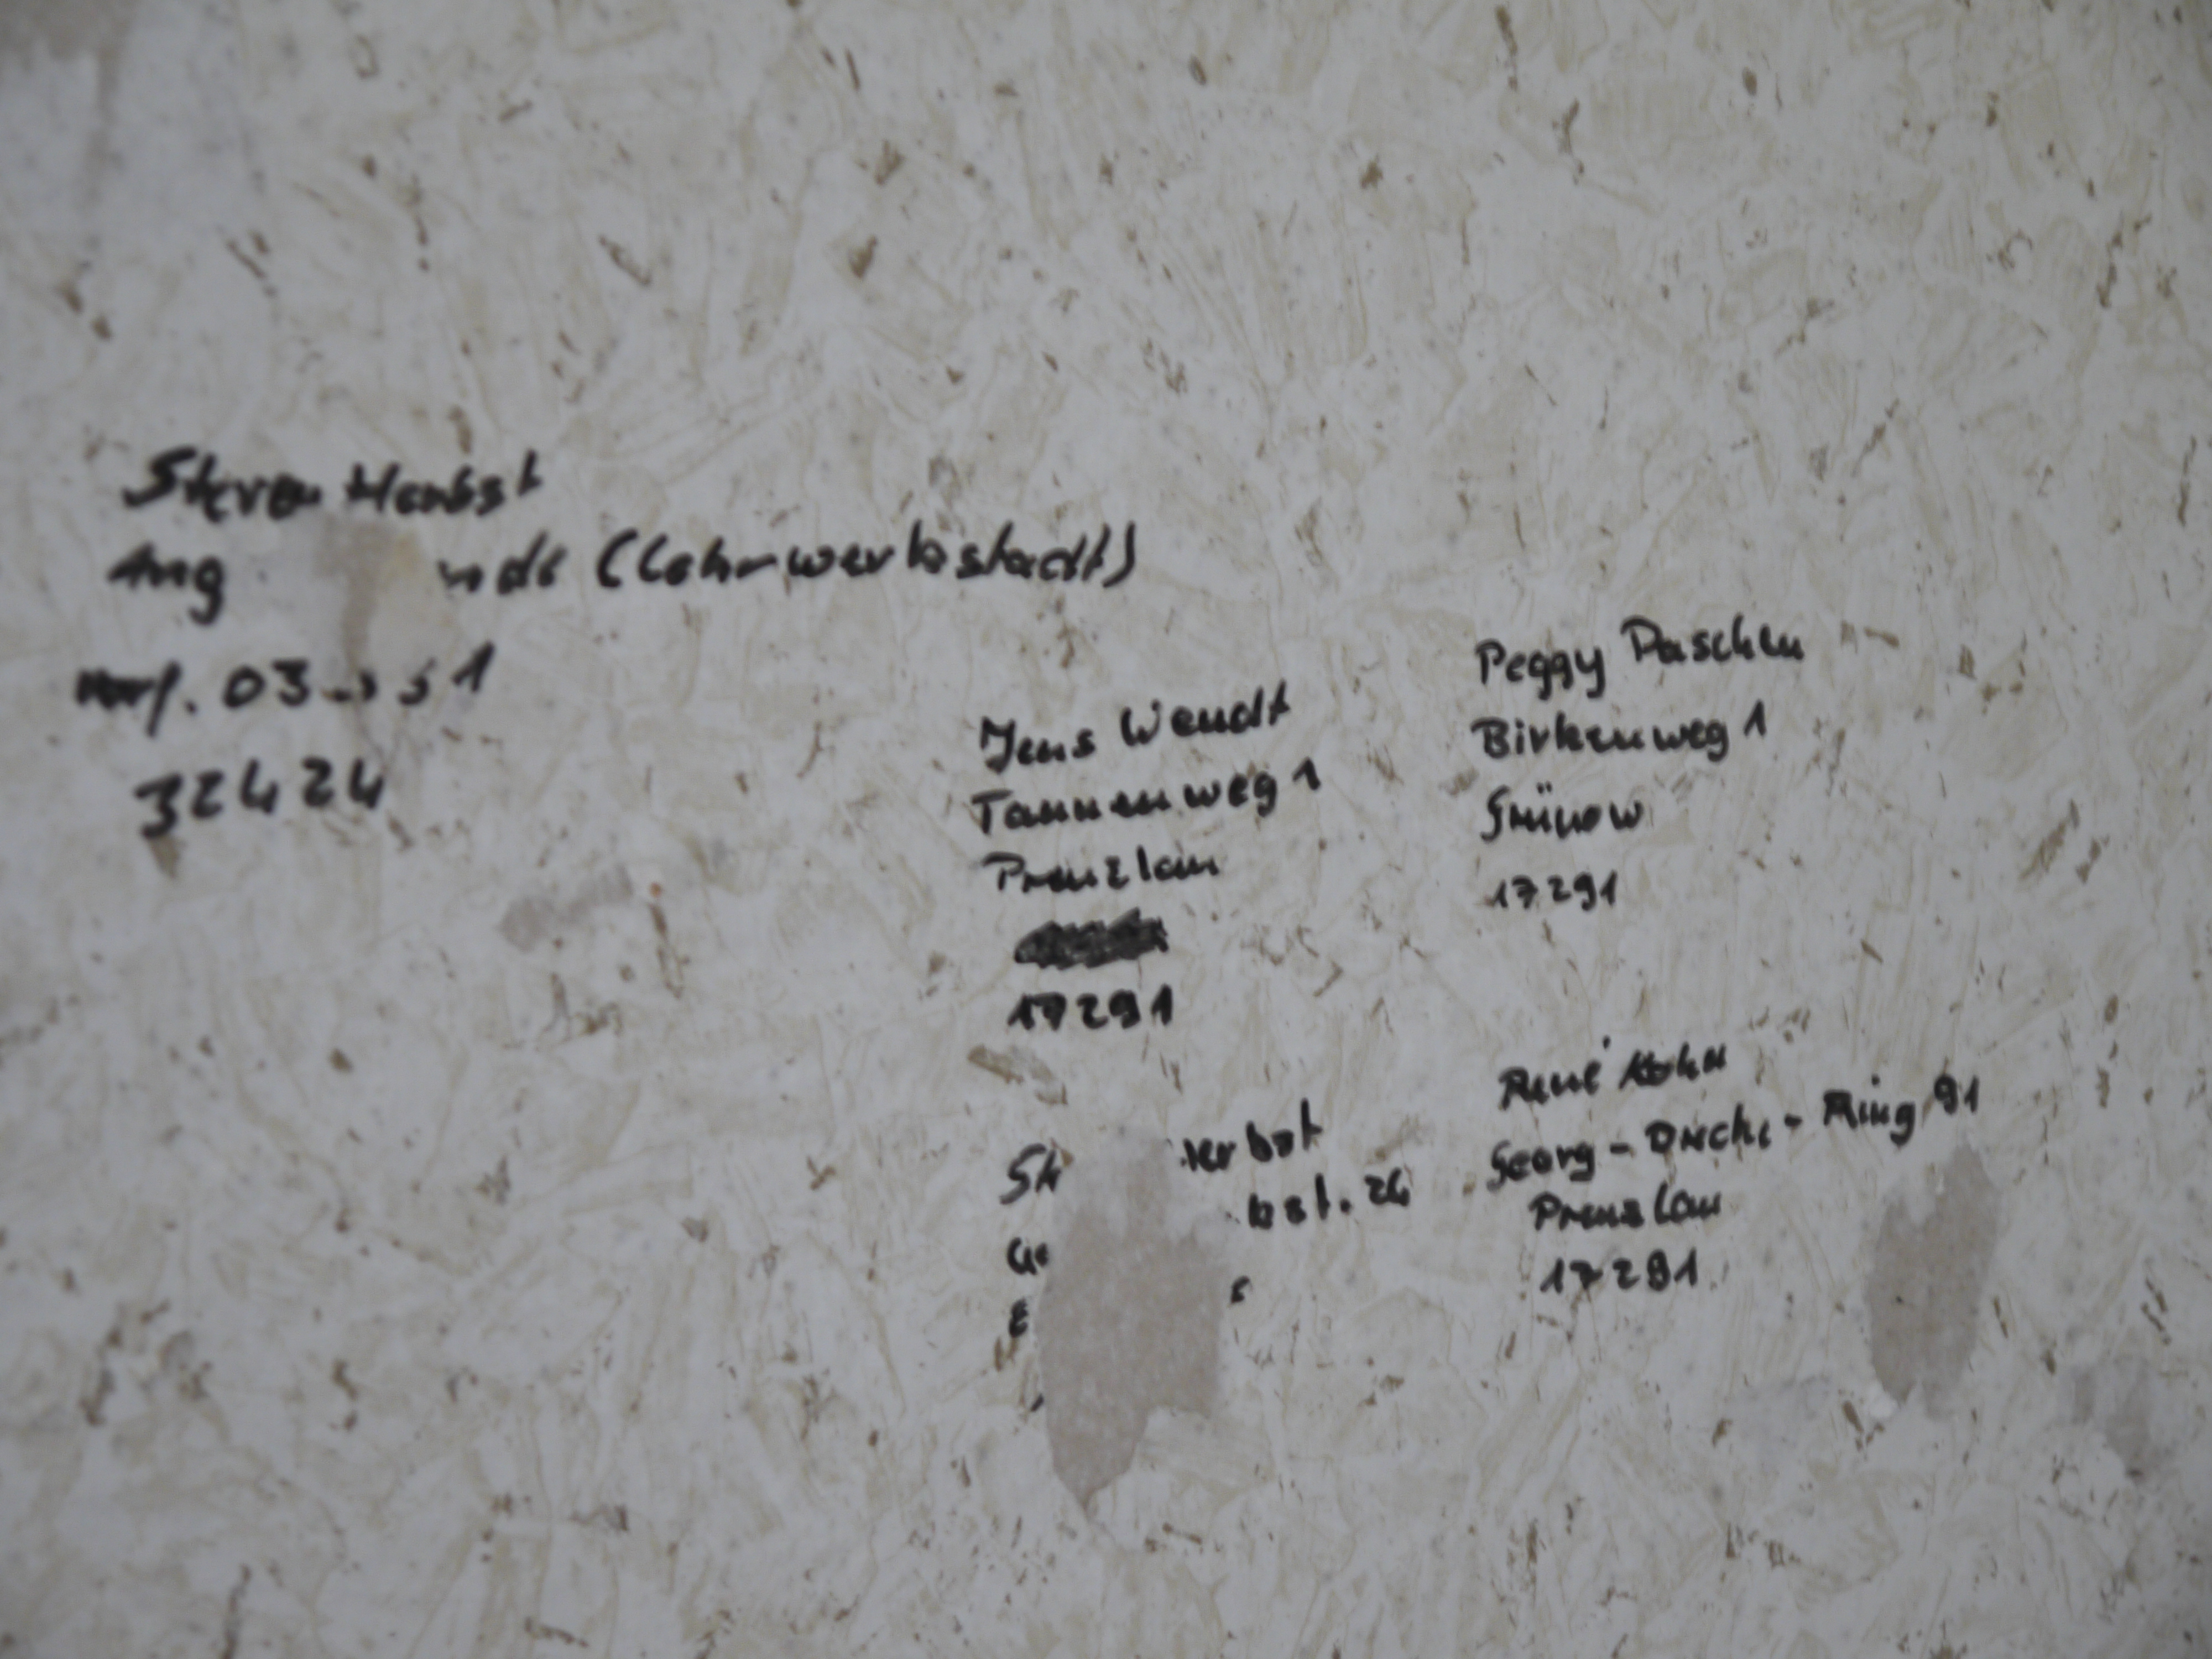 Steven Herbst
Ang nde (Lehrwerkstadt)
Vorf. 03 51
32424
Jens Wendt
Tannenweg 1
Prenzlau
17291
Peggy Paschen
Birkenweg 1
Grünow
17291
St erbst
bst. 26
René Kohn
Georg-Dreke-Ring 91
Prenzlau
17291